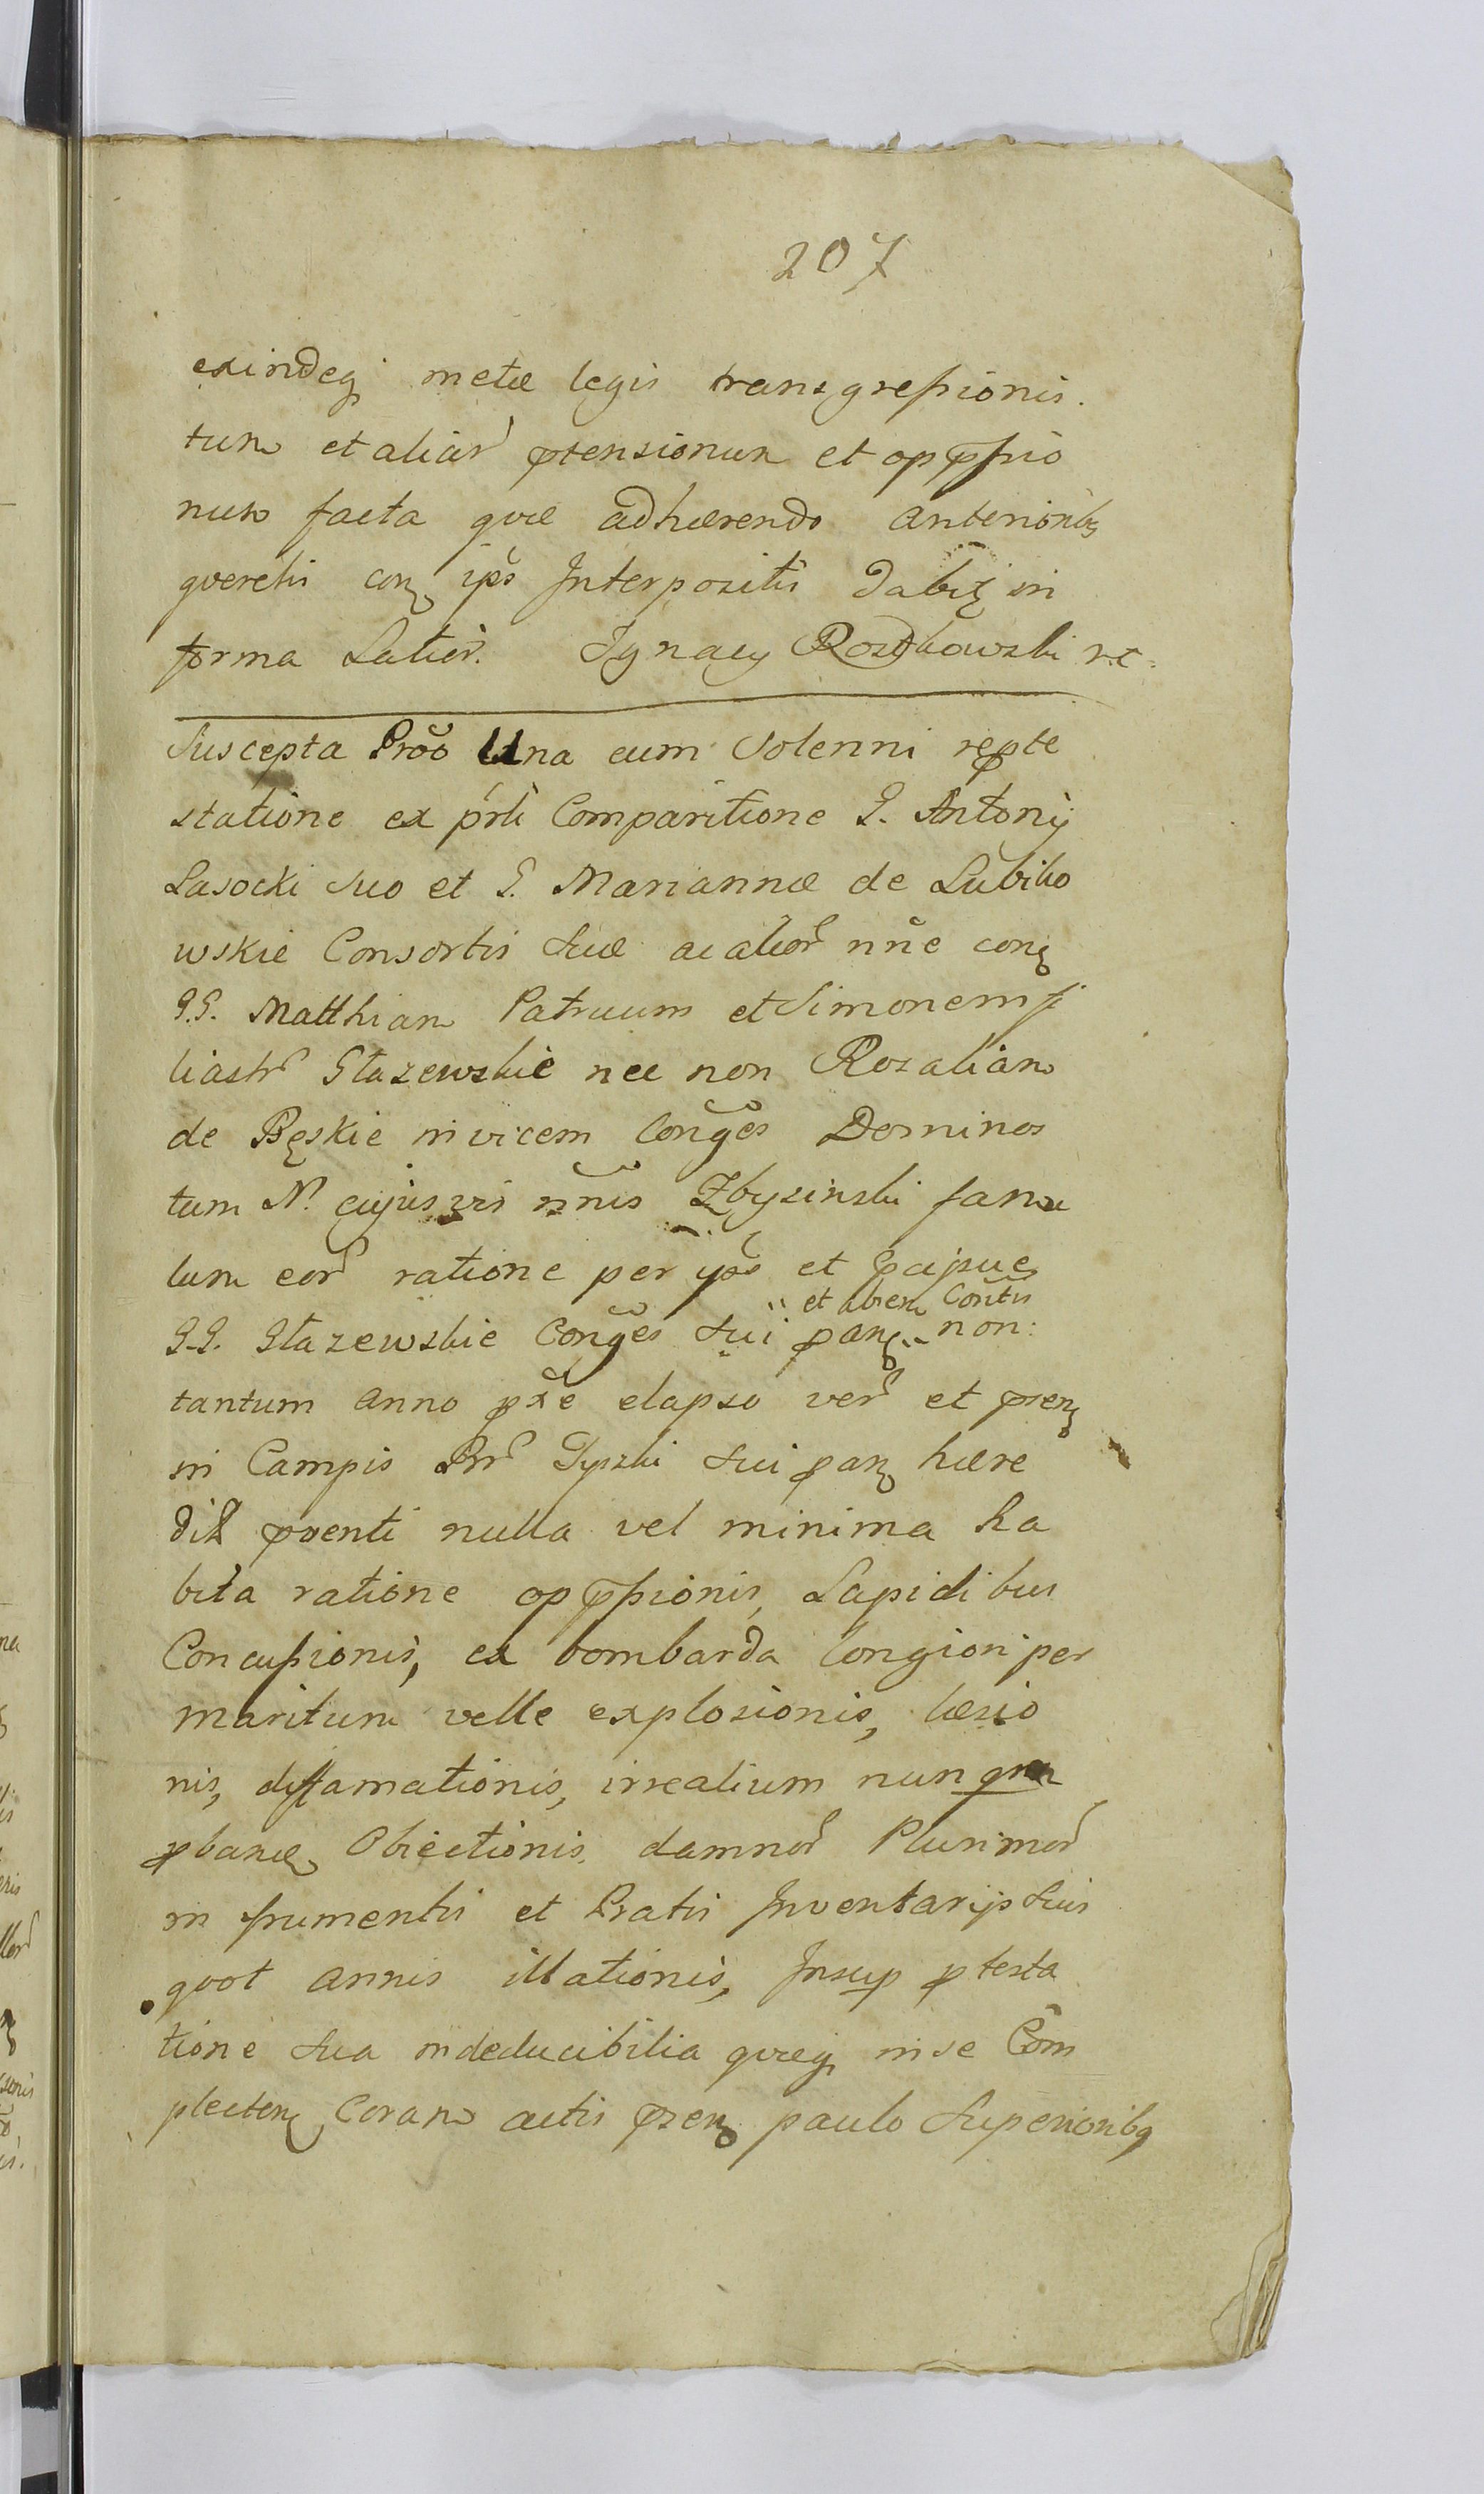 207
exindeq metæ legis transgressionis.
tum et aliar ptensionum et oppssio
num facta qvæ adhærendo anterioribq
qverelis con ips Interpositis dabit in
forma Latior. Ignacy Rostkowski rc.
Suscepta Pròo Una cum Solenni repte
statione ex prli Comparitione G. Antonij
Lasocki suo et G. Mariannæ de Lubiko
wskie Consortis suæ ac alior nñe con
G.G. Matthiam Patruum et Simonem fi
liastr Stazewskie nec non Rozaliam
de Bęskie invicem Conges Dominos
tum N. cujusvis nñis Zbyzinski famu
lum eor ratione per ips et pcipue
et abiem Contis
G.G. Stazewskie Conges sui pan non
tantum anno pxe elapso ver et psen
in Campis Bnr Tyszki sui pan hære
dit psenti nulla vel minima ha
bita ratione oppssionis, Lapidibus
Concussionis, ex bombarda longiori per
maritum velle explosionis, læsio
nis, diffamationis, irrealium nunqm
pbanæ Obiectionis, damnor Plurimor
in frumentis et Pratis Inventarijs suis
qvot annis illationis, Insup ptesta
tione sua indeducibilia qvæq in se Com
plecten Coram actis psen paulo superioribq